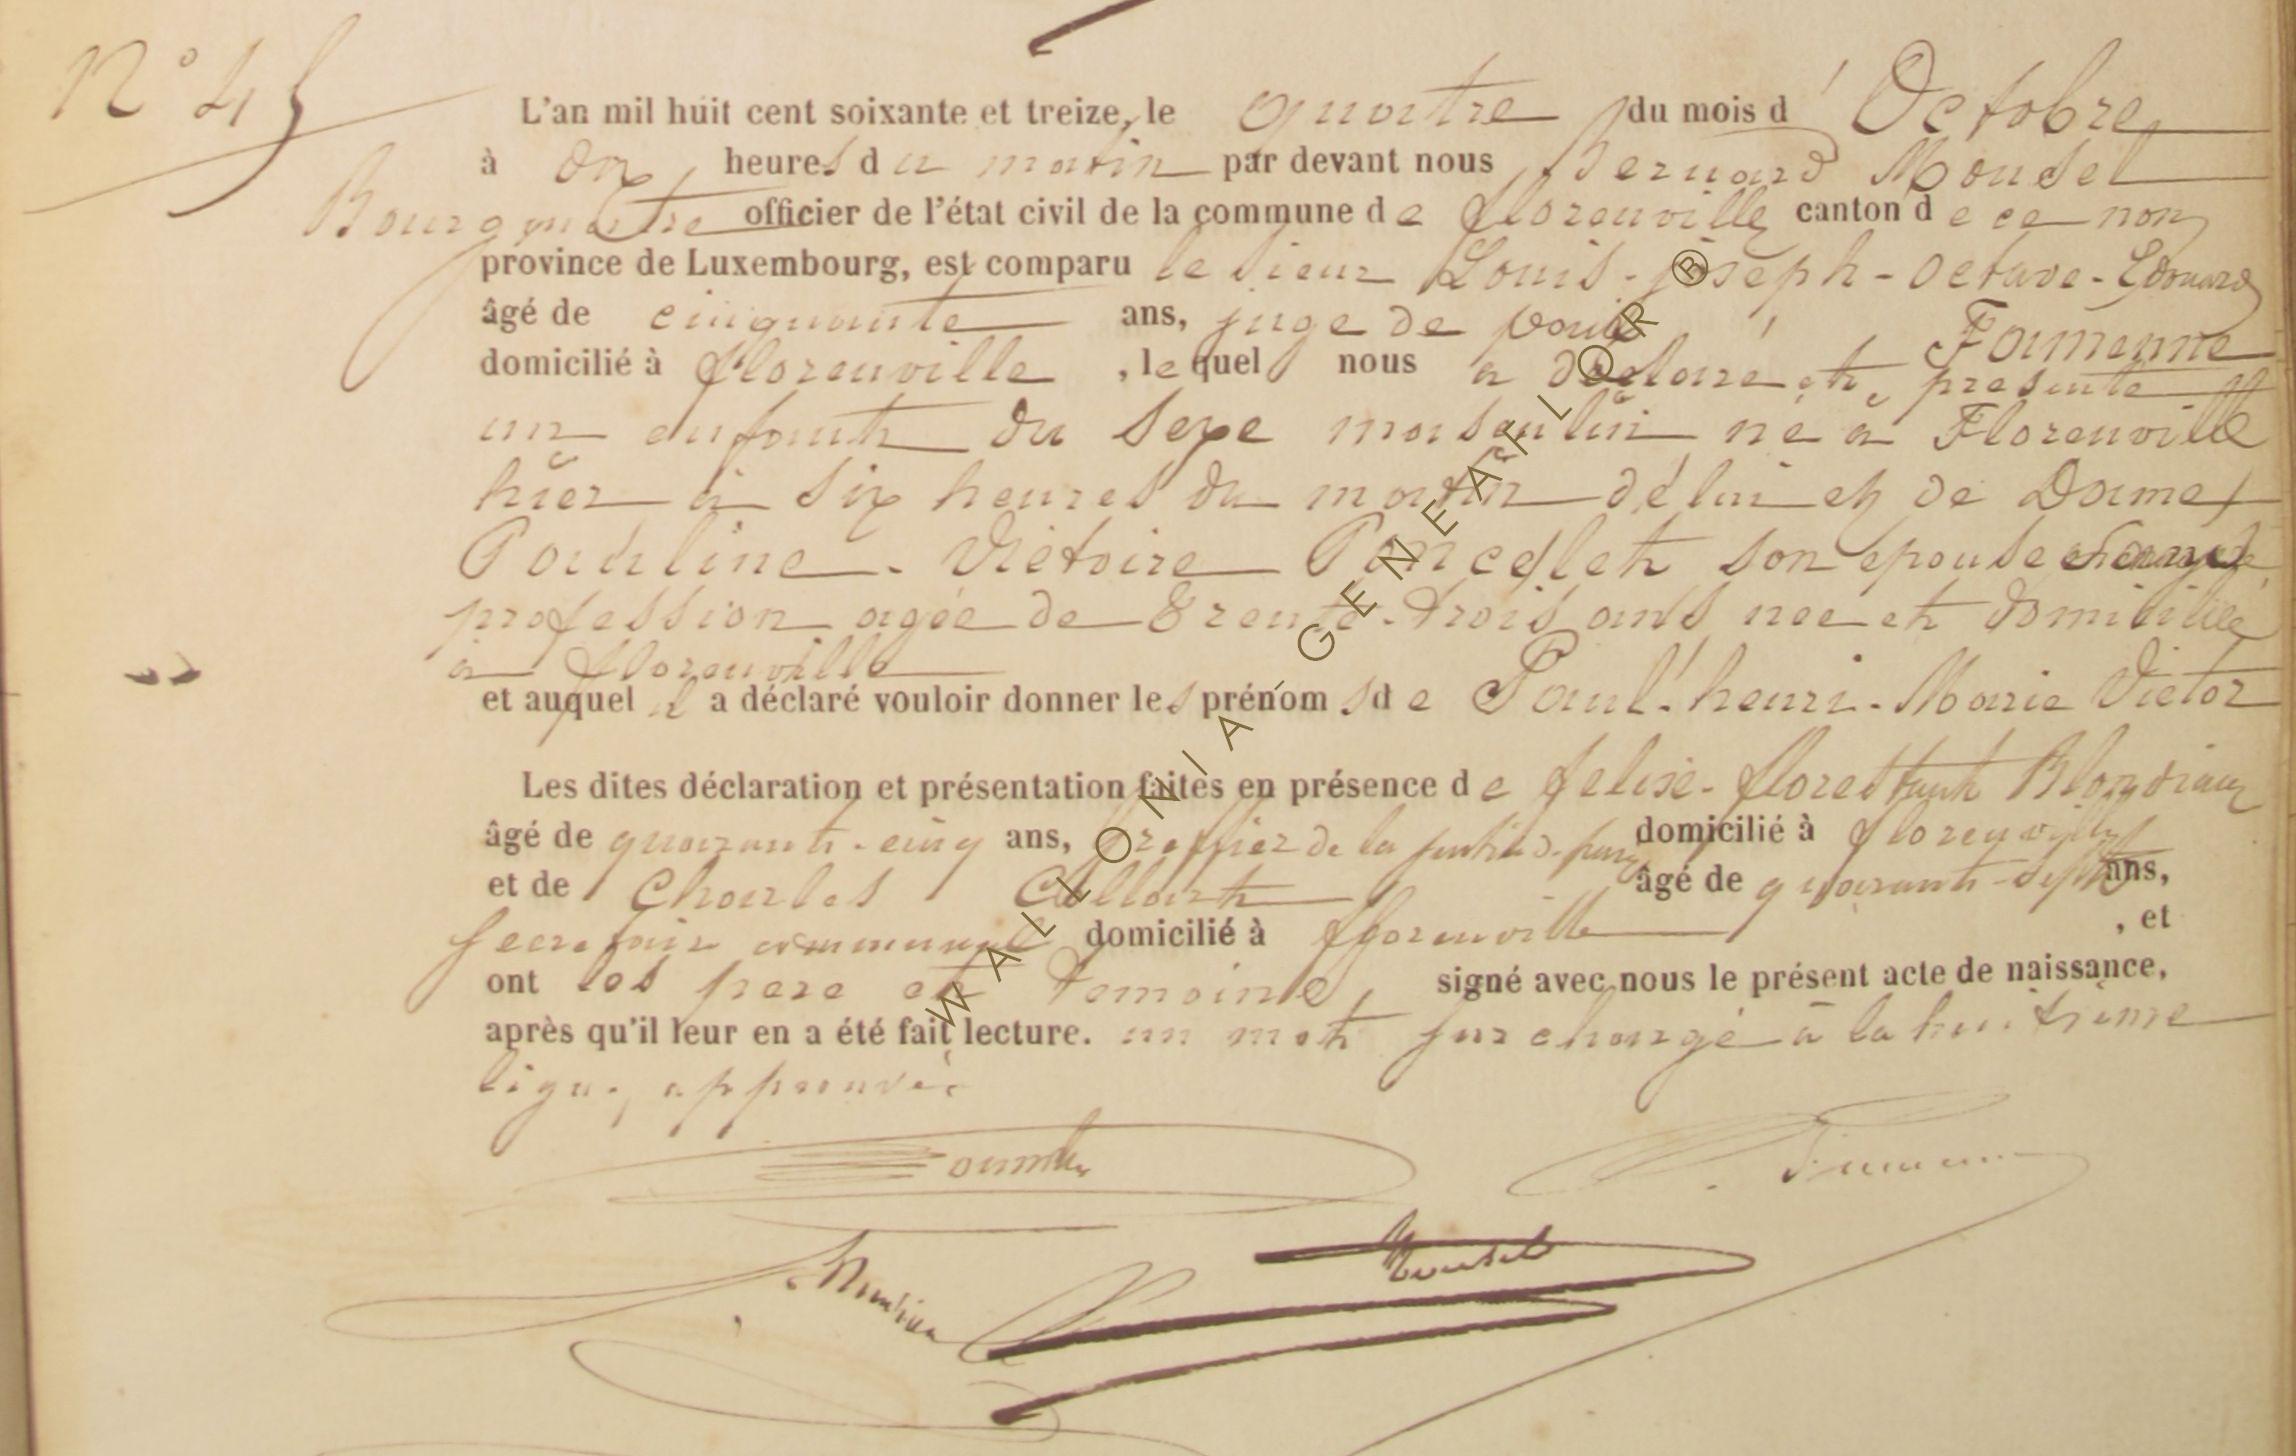 N° 45
L'an mil huit cent soixante et treize, le quatre du mois d'Octobre
à dix heures du matin par devant nous Bernard Mousel
Bourgmestre officier de l'état civil de la commune de florenville canton de ce nom
province de Luxembourg, est comparu le sieur Louis-joseph-octave-Edouard
Famenne
âgé de cinquante ans, juge de paix
domicilié à florenville, lequel nous a déclaré et presenté
un enfant du sexe masculin né à Florenville
hier à six heures du matin de lui et de Dame
Pauline-Victoire Poncelet son epouse
profession agée de Trente-trois ans née et domiciliée
à florenville
et auquel il a déclaré vouloir donner les prénoms de Paul-henri-Marie Victor
Les dites déclaration et présentation faites en présence de felix-florestant Blondiaux
âgé de quarante-cinq ans, greffier de la justice de paix domicilié à florenville
et de Charles Collart âgé de quarante-sept ans,
secretaire communal domicilié à florenville, et
ont les pere et temoins, signé avec nous le présent acte de naissance,
après qu'il leur en a été fait lecture. un mot surchargé à la huitième
ligne, approuvée
Mousel
WALLONIA GÉNÉA-FLOR ®